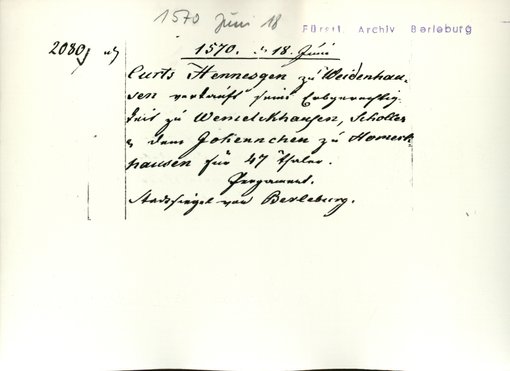 1570 Juni 18
Fürstl. Archiv Berleburg
2080
1570. 18. Juni
Curts Hennesgen zu Weidenhau-
sen verkauft seine Erbgerechtig-
keit zu Wemelckhausen, Scholles
dem Johennchen zu Homerk-
hausen für 47 Thaler.
Pergament.
Stadtsiegel von Berleburg.